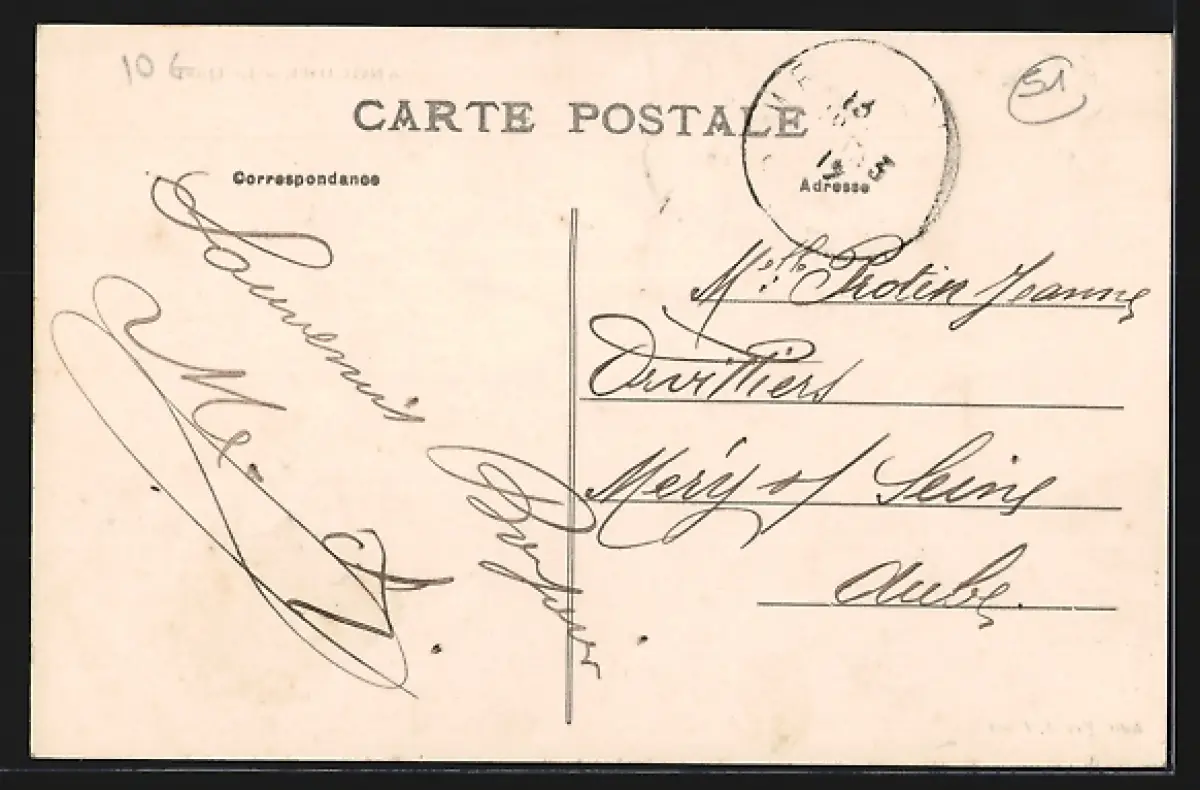 10
51
CARTE POSTALE
Correspondance
Adresse
13
Souvenirs
M.
Melle Protin Jeanne
Orvilliers
Mery s/ Seine
Aube.